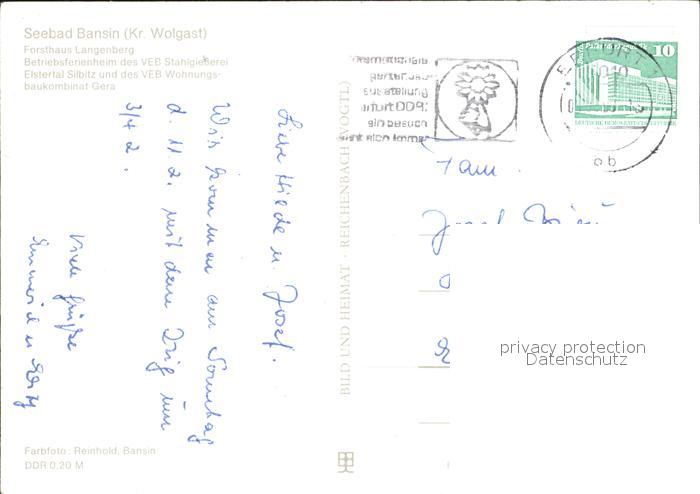 Seebad Bansin (Kr. Wolgast)
Forsthaus Langenberg
Betriebsferienheim des VEB Stahlgießerei
Elstertal Silbitz und des VEB Wohnungs-
baukombinat Gera
Liebe Hilde u. Josef.
Wir kommen am Sonntag
d. 11. 2. mit dem Zug um
3/4 2.
Viele Grüße
u
Farbfoto: Reinhold, Bansin
DDR 0,20 M
BILD UND HEIMAT · REICHENBACH (VOGTL)
internationale
gartenbau
ausstellung
erfurt DDR:
ein besuch
lohnt sich immer
ERFURT 1
bb
10
DEUTSCHE DEMOKRATISCHE REPUBLIK
Fam
Josef
privacy protection
Datenschutz